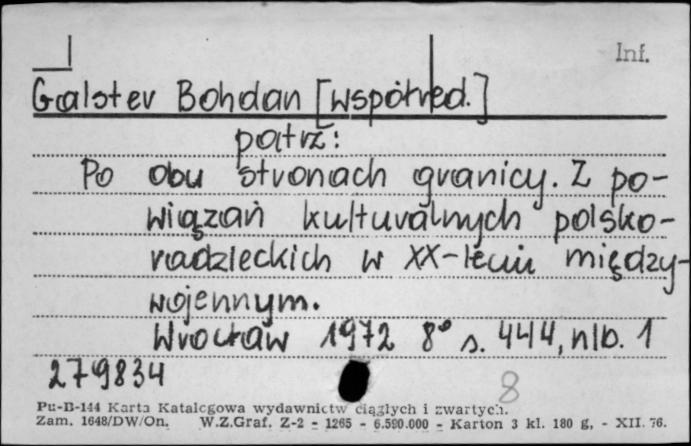 Inf.
Galster Bohdan [współred.]
patrz:
Po obu stronach granicy. Z po-
wiązań kulturalnych polsko-
radzieckich w XX-leciu między-
wojennym.
Wrocław 1972 8° s. 444, nlb. 1
279834
8
Pu-B-144 Karta Katalogowa wydawnictw ciągłych i zwartych.
Zam. 1648/DW/On. W.Z.Graf. Z-2 - 1265 - 6.590.000 - Karton 3 kl. 180 g, - XII. 76.